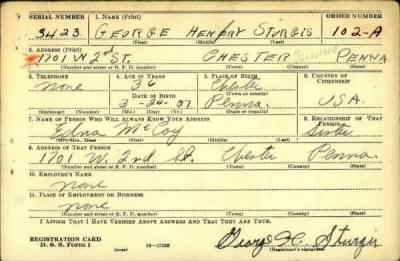 SERIAL NUMBER 1. NAME (Print) ORDER NUMBER
3423 GEORGE HENERY STURGIS 102-A
(First) (Middle) (Last)
2. ADDRESS (Print)
1701 W 2nd ST. CHESTER PENNA
(Number and street or R. F. D. number) (Town) (County) (State)
3. TELEPHONE 4. AGE IN YEARS 5. PLACE OF BIRTH 6. COUNTRY OF CITIZENSHIP
none 36 Chester
DATE OF BIRTH
3-24-07 Penna. USA.
(Mo.) (Day) (Yr.) (State or country)
7. NAME OF PERSON WHO WILL ALWAYS KNOW YOUR ADDRESS 8. RELATIONSHIP OF THAT PERSON
Edna McCoy Sister
(Mr., Mrs., Miss) (First) (Middle) (Last)
9. ADDRESS OF THAT PERSON
1701 W. 2nd St. Chester Penna.
(Number and street or R. F. D. number) (Town) (County) (State)
10. EMPLOYER'S NAME
none
11. PLACE OF EMPLOYMENT OR BUSINESS
none
(Number and street or R. F. D. number) (Town) (County) (State)
I AFFIRM THAT I HAVE VERIFIED ABOVE ANSWERS AND THAT THEY ARE TRUE.
REGISTRATION CARD
D. S. S. Form 1 (over) George H. Sturgis
(Registrant's signature)